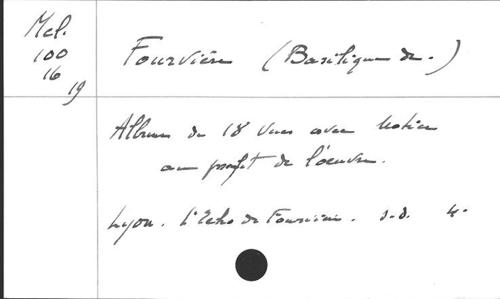 Mel.
100
16
19
Fourvière (Basilique de.)
Album de 18 vues avec Notice
au profit de l'oeuvre.
Lyon. l'Echo de Fourvière. s.d. 4.